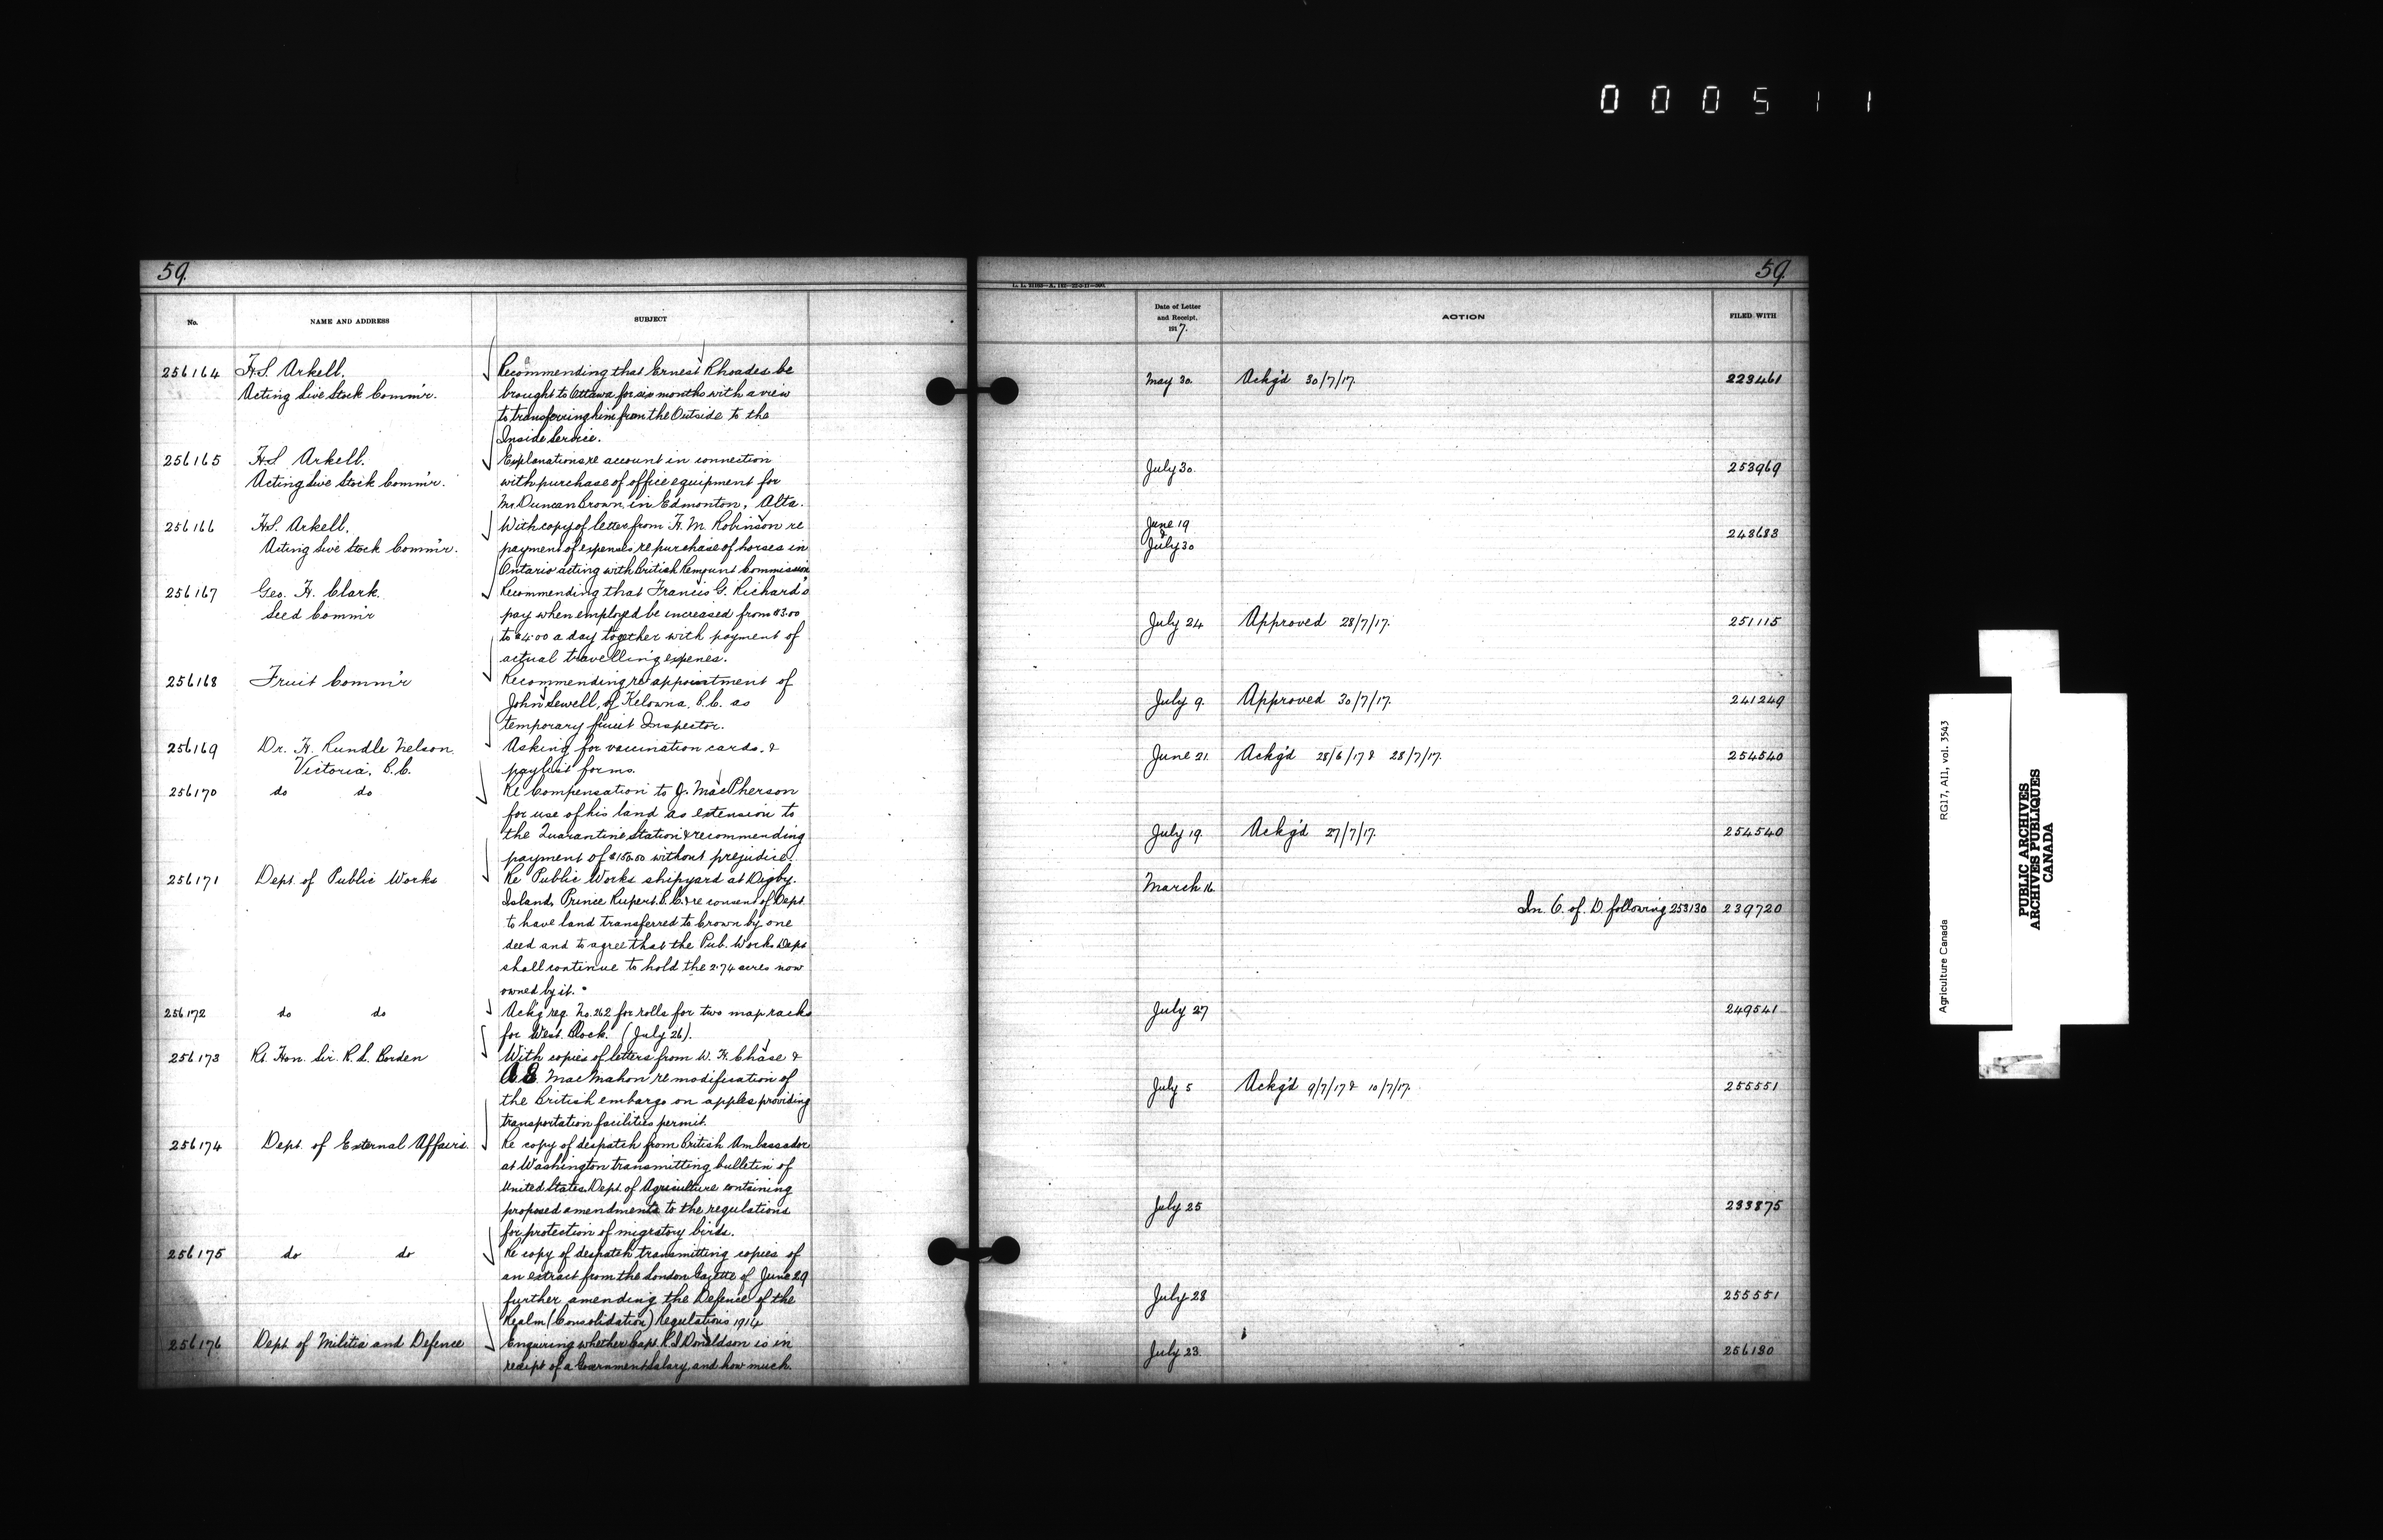 000511
59.
59.
L. L. 21103—A. 142—22-3-17—500.
No.
NAME AND ADDRESS
SUBJECT
Date of Letter
and Receipt.
1917.
ACTION
FILED WITH
256164 H.S. Arkell. Recommending that Ernest Rhoades be
Acting Live Stock Comm'r. brought to Ottawa for six months with a view May 30. Ackg'd 30/7/17. 223461
to transferring him from the Outside to the
Inside Service.
256165 H.S. Arkell. Explanations re account in connection July 30. 253969
Acting Live Stock Comm'r. with purchase of office equipment for
Mr. Duncan Brown, in Edmonton, Alta.
256166 H.S. Arkell. With copy of letter from H. M. Robinson re June 19
& 243683
Acting Live Stock Comm'r. payment of expenses re purchase of horses in July 30
Ontario acting with British Remount Commission
256167 Geo. H. Clark. Recommending that Francis G. Richard's
Seed Comm'r pay when employed be increased from $3.00 July 24 Approved 28/7/17. 251115
to $4.00 a day together with payment of
actual travelling expenes.
256168 Fruit Comm'r Recommending re appointment of
John Sewell, of Kelowna, B.C. as July 9. Approved 30/7/17. 241249
temporary fruit Inspector.
256169 Dr. H. Rundle Nelson. Asking for vaccination cards. & June 21. Ackg'd 28/6/17 & 28/7/17. 254540
Victoria. B.C. paylist forms.
256170 do do Re Compensation to J. MacPherson
for use of his land as extension to
the Quarantine Station & recommending July 19. Ackg'd 27/7/17. 254540
payment of $150.00 without prejudice.
256171 Dept. of Public Works Re Public Works shipyard at Digby March 16.
Island, Prince Rupert. B.C. & re consent of Dept. In. C. of. D. following 253130 239720
to have land transferred to Crown by one
deed and to agree that the Pub. Works Dept
shall continue to hold the 2.74 acres now
owned by it.
256172 do do Ackg req. No. 262 for rolls for two map racks July 27 249541
for West Block. (July 26).
256173 Rt. Hon. Sir. R. L. Borden With copies of letters from W. H. Chase &
MacMahon re modification of July 5 Ackg'd 9/7/17 & 10/7/17. 255551
the British embargo on apples providing
transportation facilities permit.
256174 Dept. of External Affairs. Re copy of despatch from British Ambassador
at Washington transmitting bulletin of
United States Dept. of Agriculture containing
proposed amendments to the regulations July 25 233875
for protection of migratory birds.
256175 do do Re copy of despatch transmitting copies of
an extract from the London Gazette of June 29
further amending the Defence of the July 28 255551
Realm (Consolidation) Regulations 1914
256176 Dept. of Militia and Defence Enquiring whether Capt. R.S Donaldson is in July 23. 256130
receipt of a Government Salary, and how much.
Agriculture Canada RG17, AI1, vol. 3543
PUBLIC ARCHIVES
ARCHIVES PUBLIQUES
CANADA